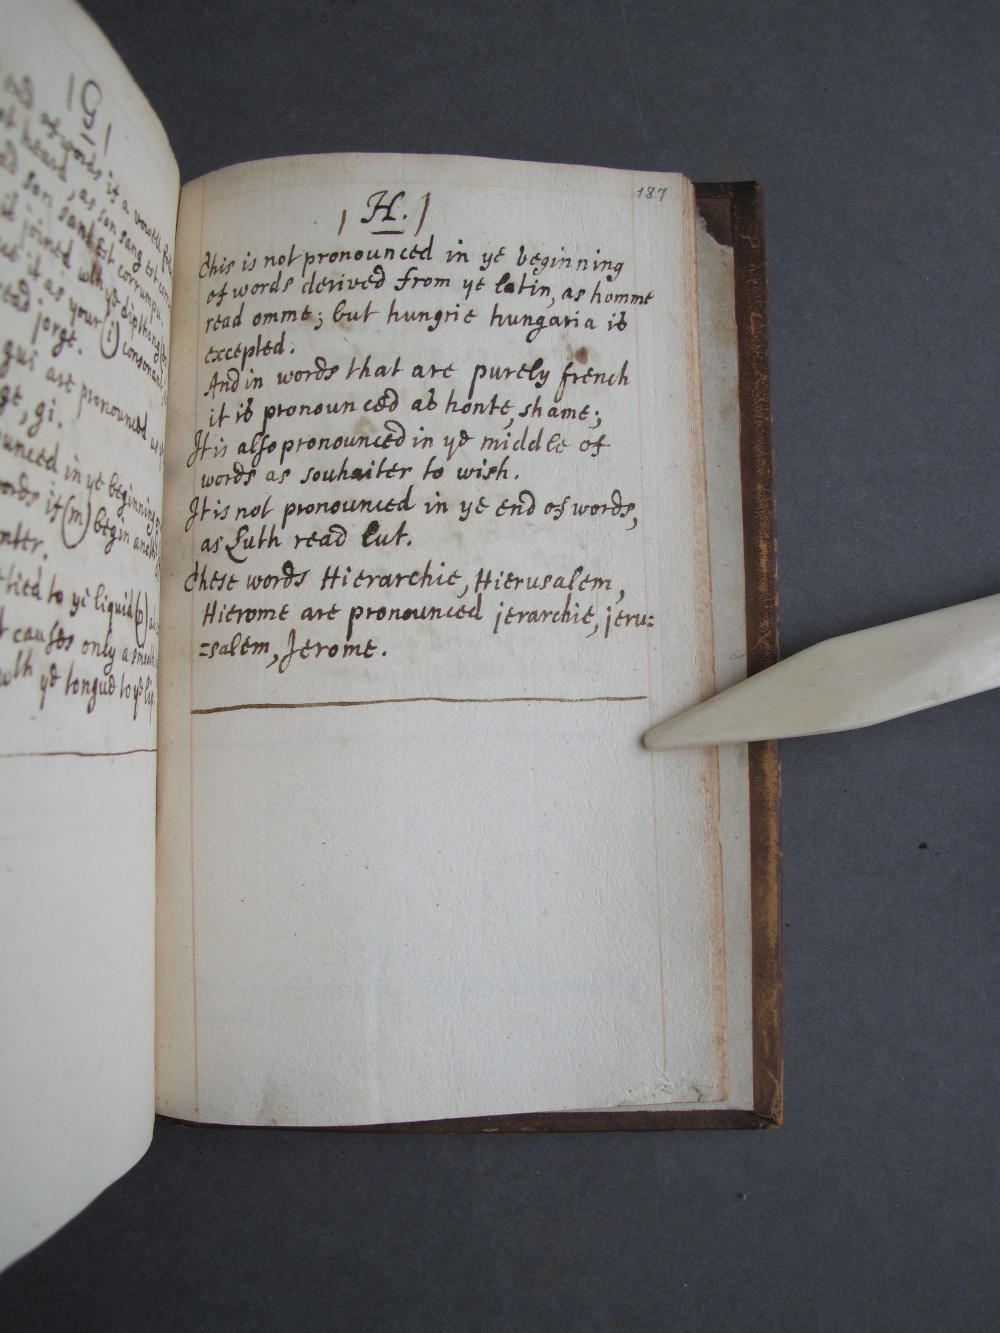 |G|
of words it a vowell
heard, as son sang est
son sant est corrumpu.
joined wth ye dipthong
it as your (i) consonant,
read jorge.
gui are pronounced as
ge, gi.
ounced in ye beginning of
words if (m) begin
tied to ye liquid
causes only a
wth ye tongue to ye
187
|H.|
This is not pronounced in ye beginning
of words derived from ye latin, as homme
read omme; but hungrie hungaria is
excepted.
And in words that are purely french
it is pronounced as honte, shame;
It is also pronounced in ye middle of
words as souhaiter to wish.
It is not pronounced in ye end of words,
as Luth read Lut.
These words Hierarchie, Hierusalem,
Hierome are pronounced jerarchie, jeru=
=salem, Jerome.